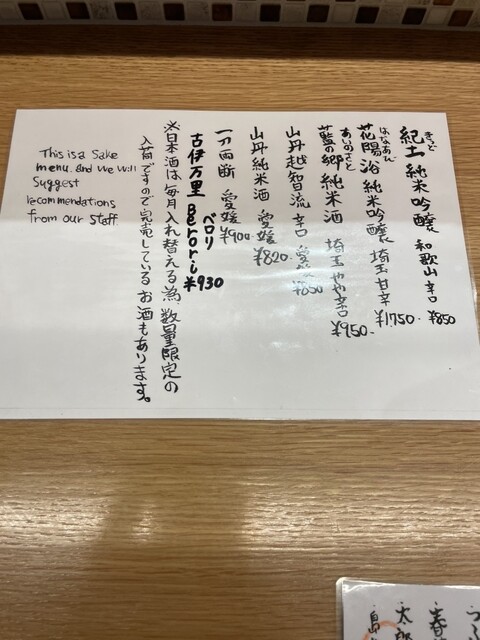 きっど
紀土 純米吟醸 和歌山 辛口 ¥850
はなあび
花陽浴 純米吟醸 埼玉 甘辛 ¥1,750-
あいのさと
藍の郷 純米酒 埼玉 やや辛口 ¥950-
山丹 越智流 辛口 愛媛 ¥850
山丹 純米酒 愛媛 ¥820-
一刀両断 愛媛 ¥900-
古伊万里 Berori ¥930
ベロリ
※日本酒は毎月入れ替える為、数量限定の
入荷ですので完売している お酒もあります。
This is a Sake
menu. And we will
Suggest
recommendations
from our staff.
太郎
春
島